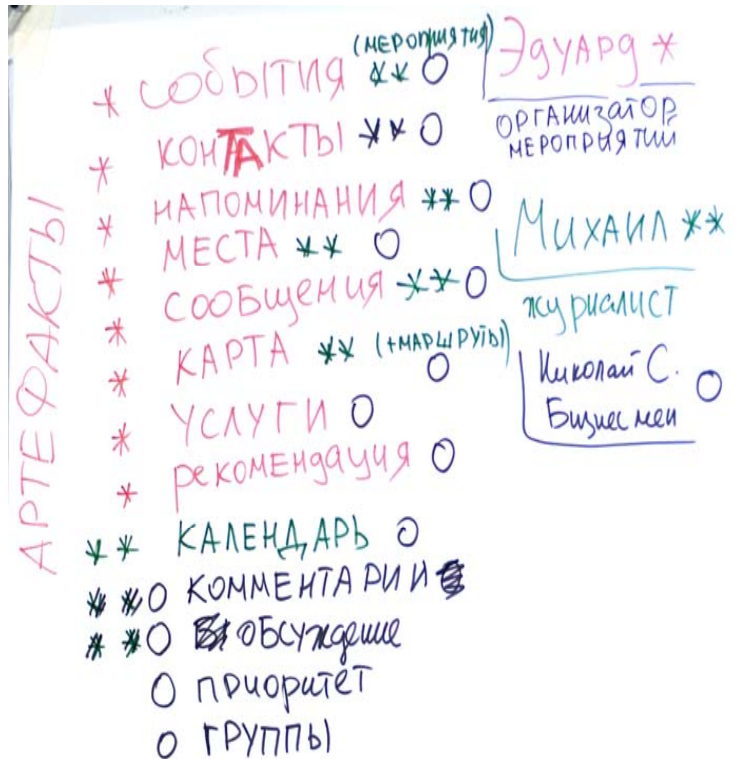 АРТЕФАКТЫ
* СОБЫТИЯ (МЕРОПРИЯТИЯ) ** O
* КОНТАКТЫ ** O
* НАПОМИНАНИЯ ** O
* МЕСТА ** O
* СООБЩЕНИЯ ** O
* КАРТА ** (+МАРШРУТЫ) O
* УСЛУГИ O
* рекомендация O
** КАЛЕНДАРЬ O
** O КОММЕНТАРИИ
** O ОБСУждение
O приоритет
O ГРУППЫ
ЭдУАРд *
ОРГАНИЗАТОР
МЕРОПРИЯТИЙ
МИХАИЛ **
журналист
Николай С. O
Бизнесмен